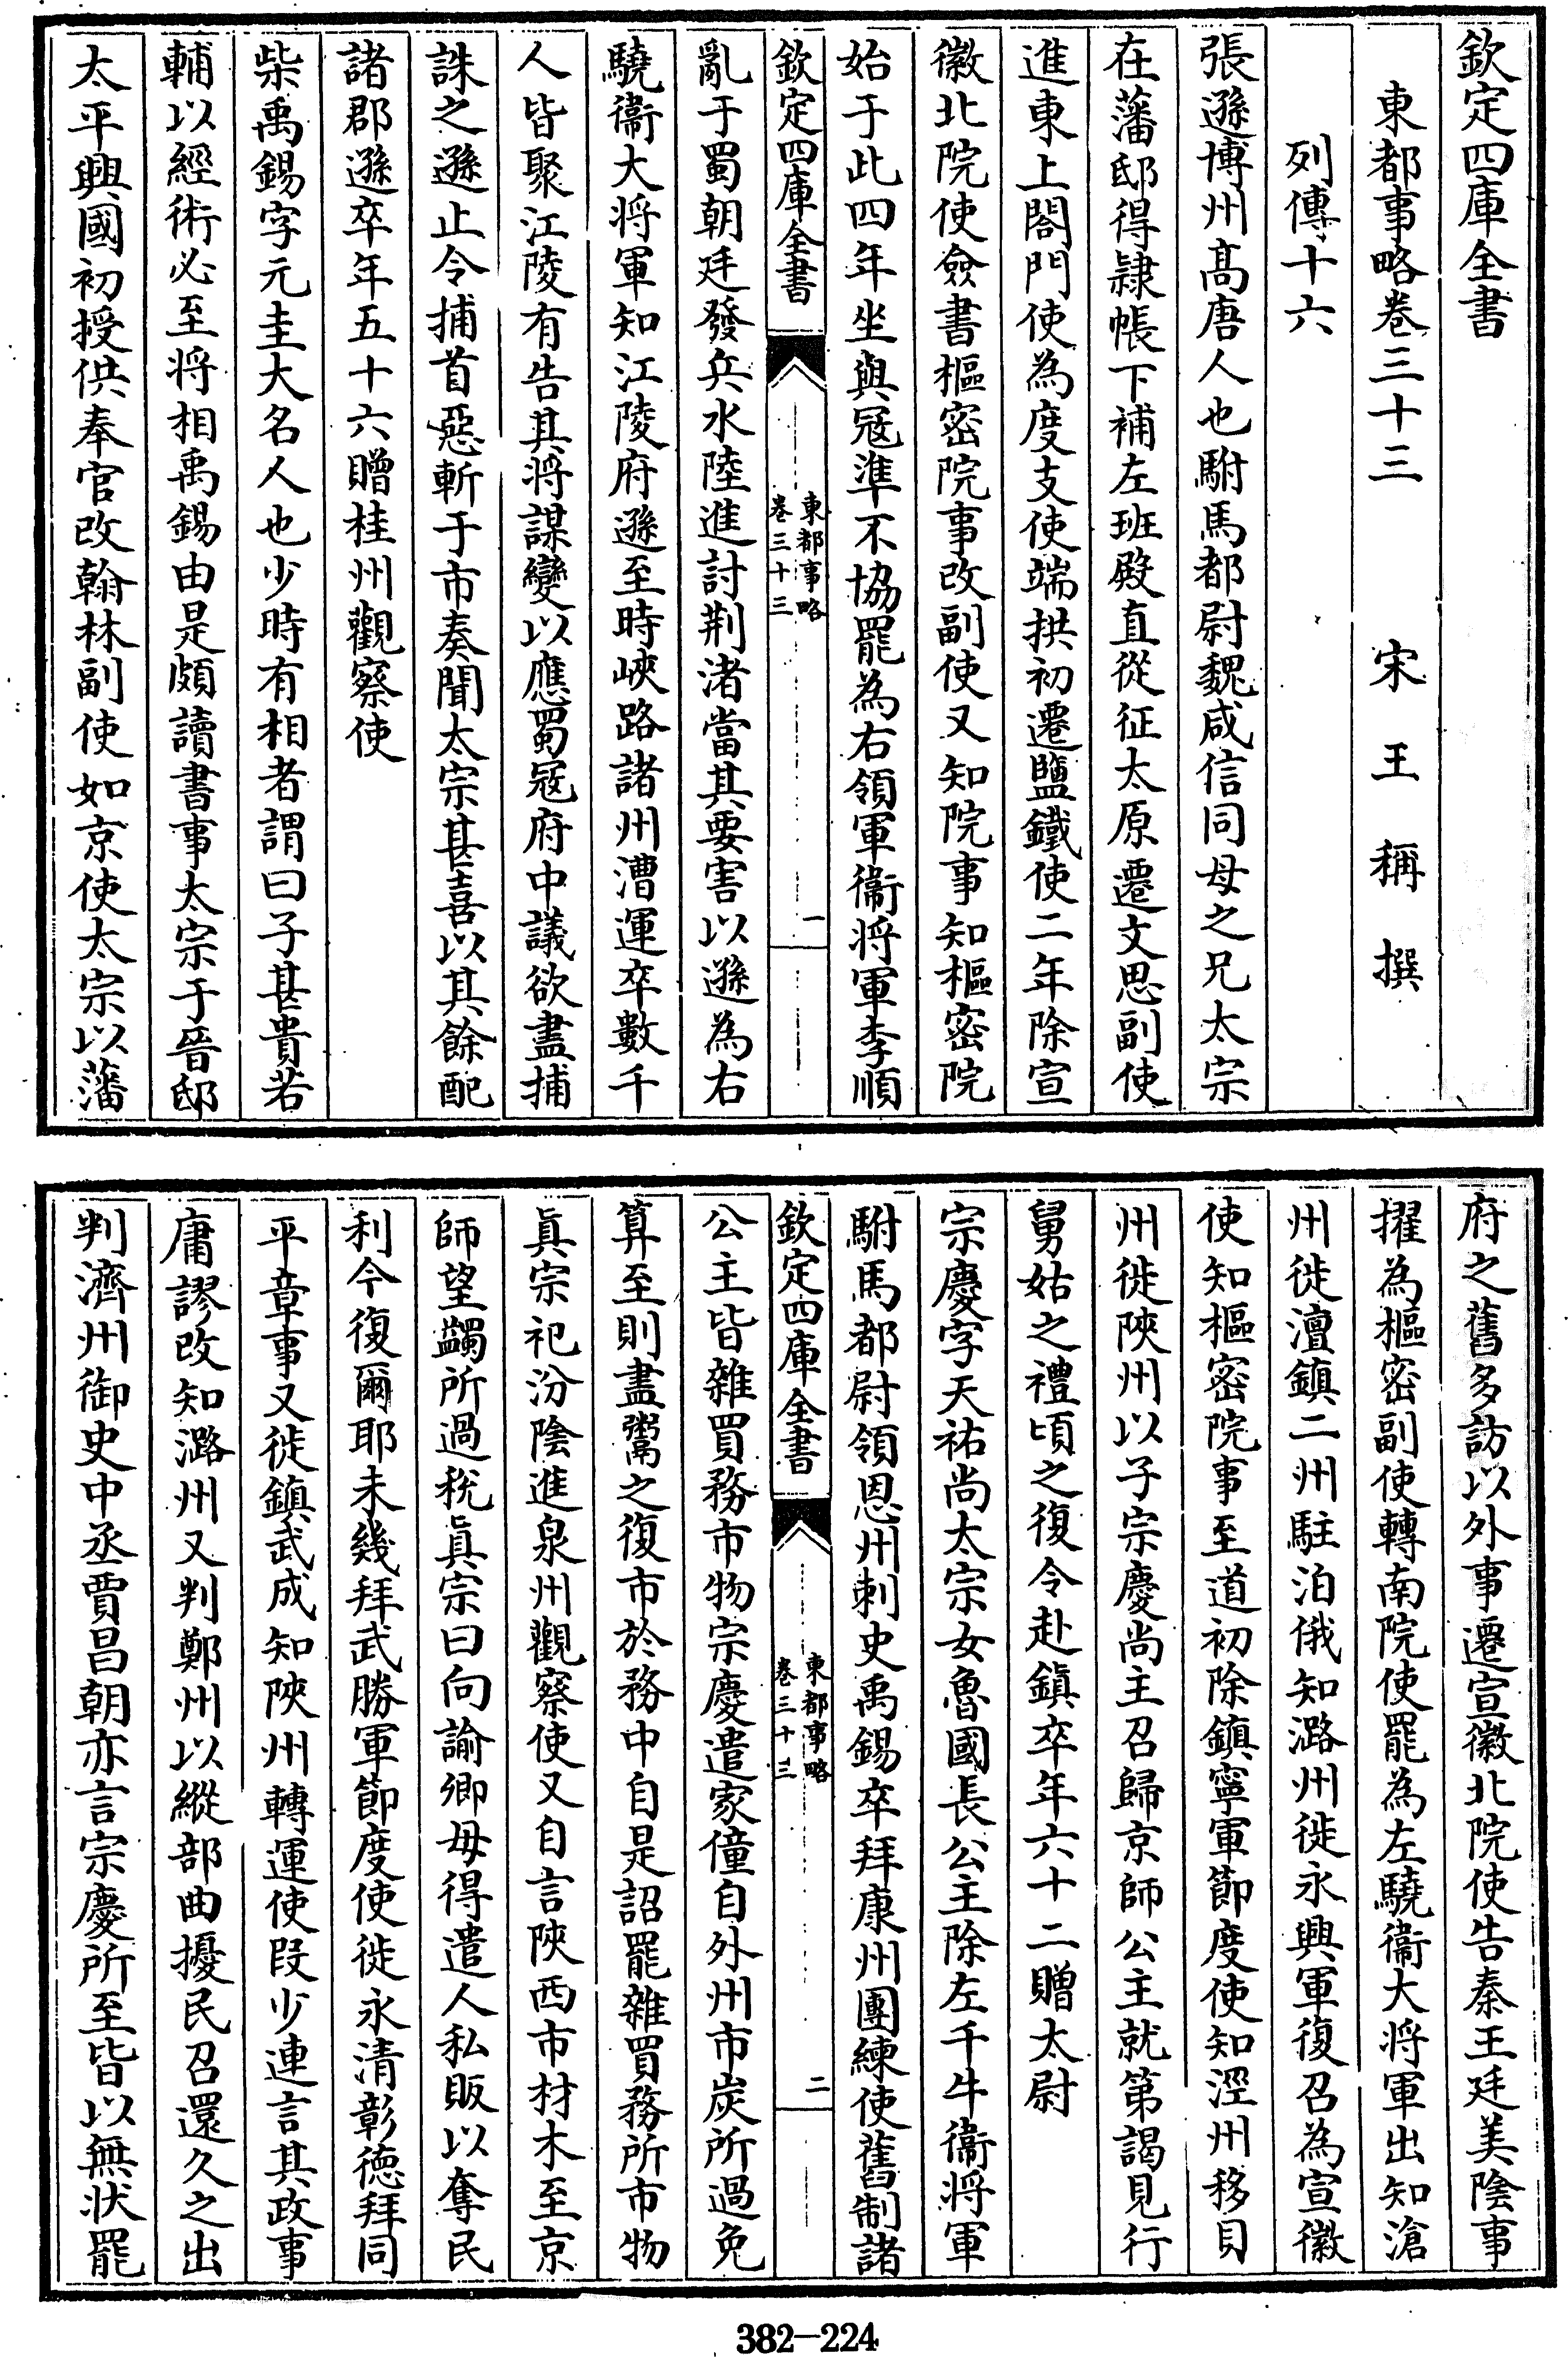 欽定四庫全書
東都事略卷三十三　宋　王　稱　撰
列傳十六
張遜博州高唐人也駙馬都尉魏咸信同母之兄太宗
在藩邸得隷帳下補左班殿直從征太原遷文思副使
進東上閤門使為度支使端拱初遷鹽鐵使二年除宣
徽北院使僉書樞密院事改副使又知院事知樞密院
始于此四年坐與冦準不協罷為右領軍衞將軍李順
欽定四庫全書
東都事略
卷三十三
一
亂于蜀朝廷發兵水陸進討荆渚當其要害以遜為右
驍衞大將軍知江陵府遜至時峽路諸州漕運卒數千
人皆聚江陵有告其將謀變以應蜀冦府中議欲盡捕
誅之遜止令捕首惡斬于市奏聞太宗甚喜以其餘配
諸郡遜卒年五十六贈桂州觀察使
柴禹錫字元圭大名人也少時有相者謂曰子甚貴若
輔以經術必至將相禹錫由是頗讀書事太宗于晉邸
太平興國初授供奉官改翰林副使如京使太宗以藩
府之舊多訪以外事遷宣徽北院使告秦王廷美陰事
擢為樞密副使轉南院使罷為左驍衞大將軍出知滄
州徙澶鎮二州駐泊俄知潞州徙永興軍復召為宣徽
使知樞密院事至道初除鎮寧軍節度使知涇州移貝
州徙陝州以子宗慶尚主召歸京師公主就第謁見行
舅姑之禮頃之復令赴鎮卒年六十二贈太尉
宗慶字天祐尚太宗女魯國長公主除左千牛衞將軍
駙馬都尉領恩州刺史禹錫卒拜康州團練使舊制諸
欽定四庫全書
東都事略
卷三十三
二
公主皆雜買務市物宗慶遣家僮自外州市炭所過免
算至則盡鬻之復市於務中自是詔罷雜買務所市物
眞宗祀汾陰進泉州觀察使又自言陝西市材木至京
師望蠲所過稅眞宗曰向諭卿毋得遣人私販以奪民
利今復爾耶未幾拜武勝軍節度使徙永清彰德拜同
平章事又徙鎮武成知陝州轉運使段少連言其政事
庸謬改知潞州又判鄭州以縱部曲擾民召還久之出
判濟州御史中丞賈昌朝亦言宗慶所至皆以無狀罷
382-224